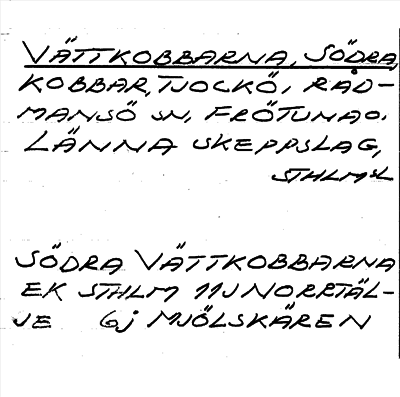 VÄTTKOBBARNA, SÖDRA,
KOBBAR, TJOCKÖ, RÅD-
MANSÖ SN, FRÖTUNA O.
LÄNNA SKEPPSLAG,
STHLMS L
SÖDRA VÄTTKOBBARNA
EK STHLM 11J NORRTÄL-
JE 6j MJÖLSKÄREN